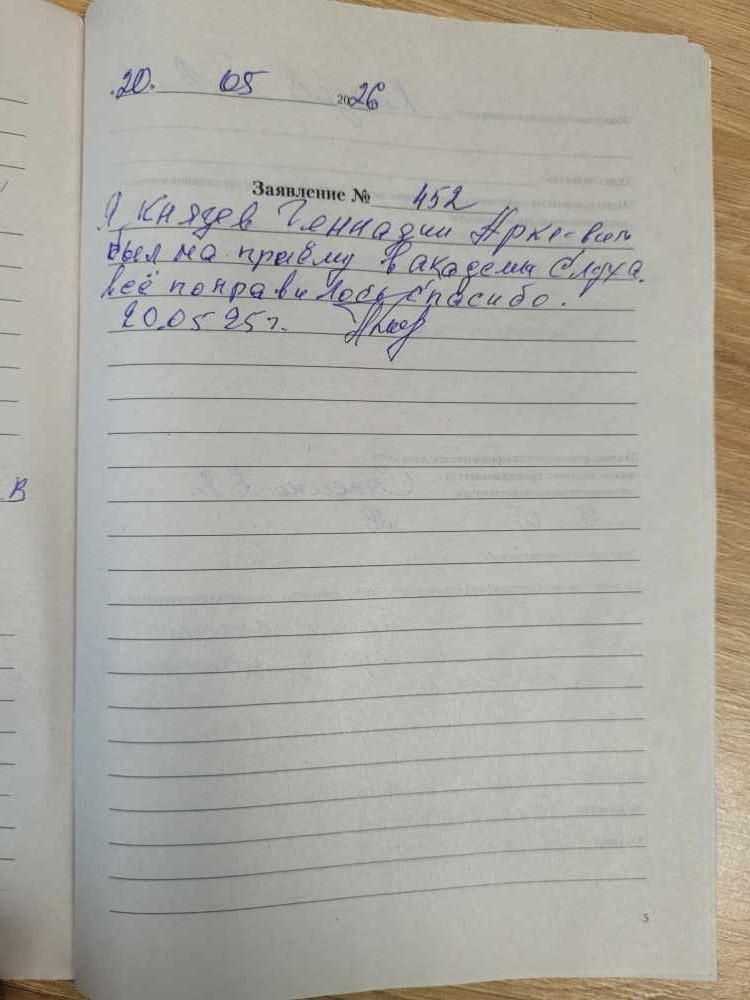 .20. 05 2026
Заявление № 452
Я Князев Геннадии
был на приёму в академы Слуха.
всё понравилось спасибо.
20.05 25г.
В
5